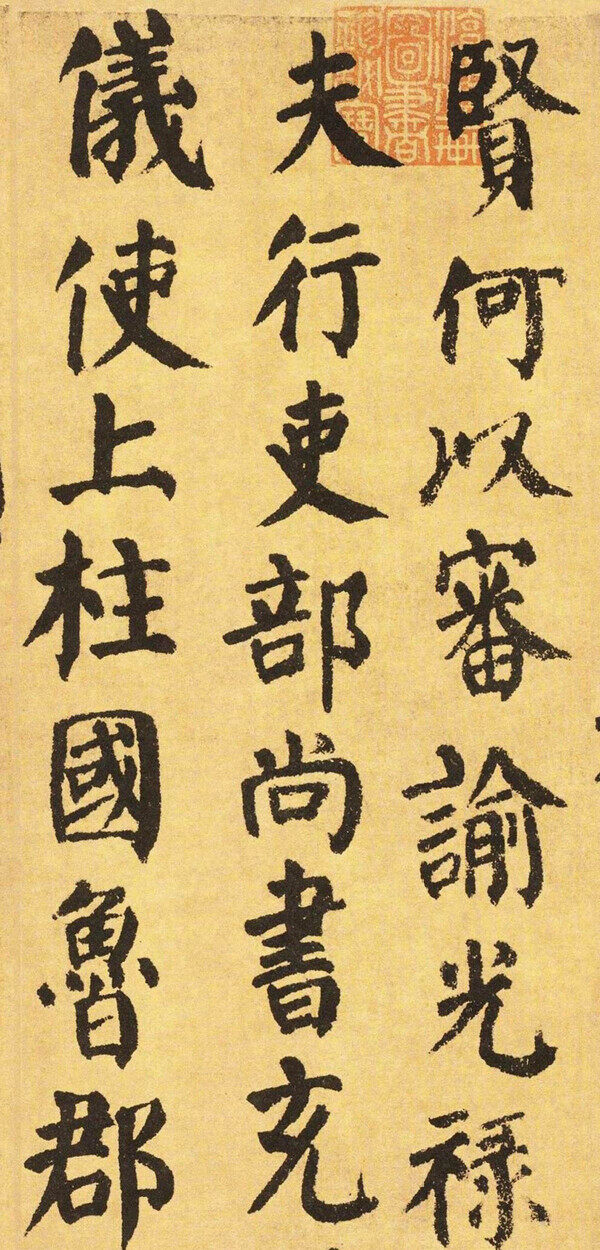 賢何以審諭光禄
夫行吏部尚書充
儀使上柱國魯郡